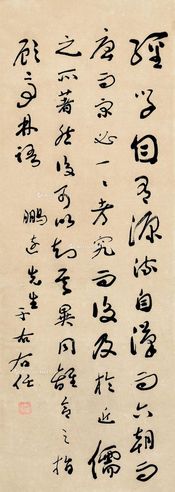 經學自有源流自漢而六朝而
唐而宋必一一考究而後及於近儒
之所著然後可以知其異同離合之指
顧亭林語
鵬遠先生 于右任